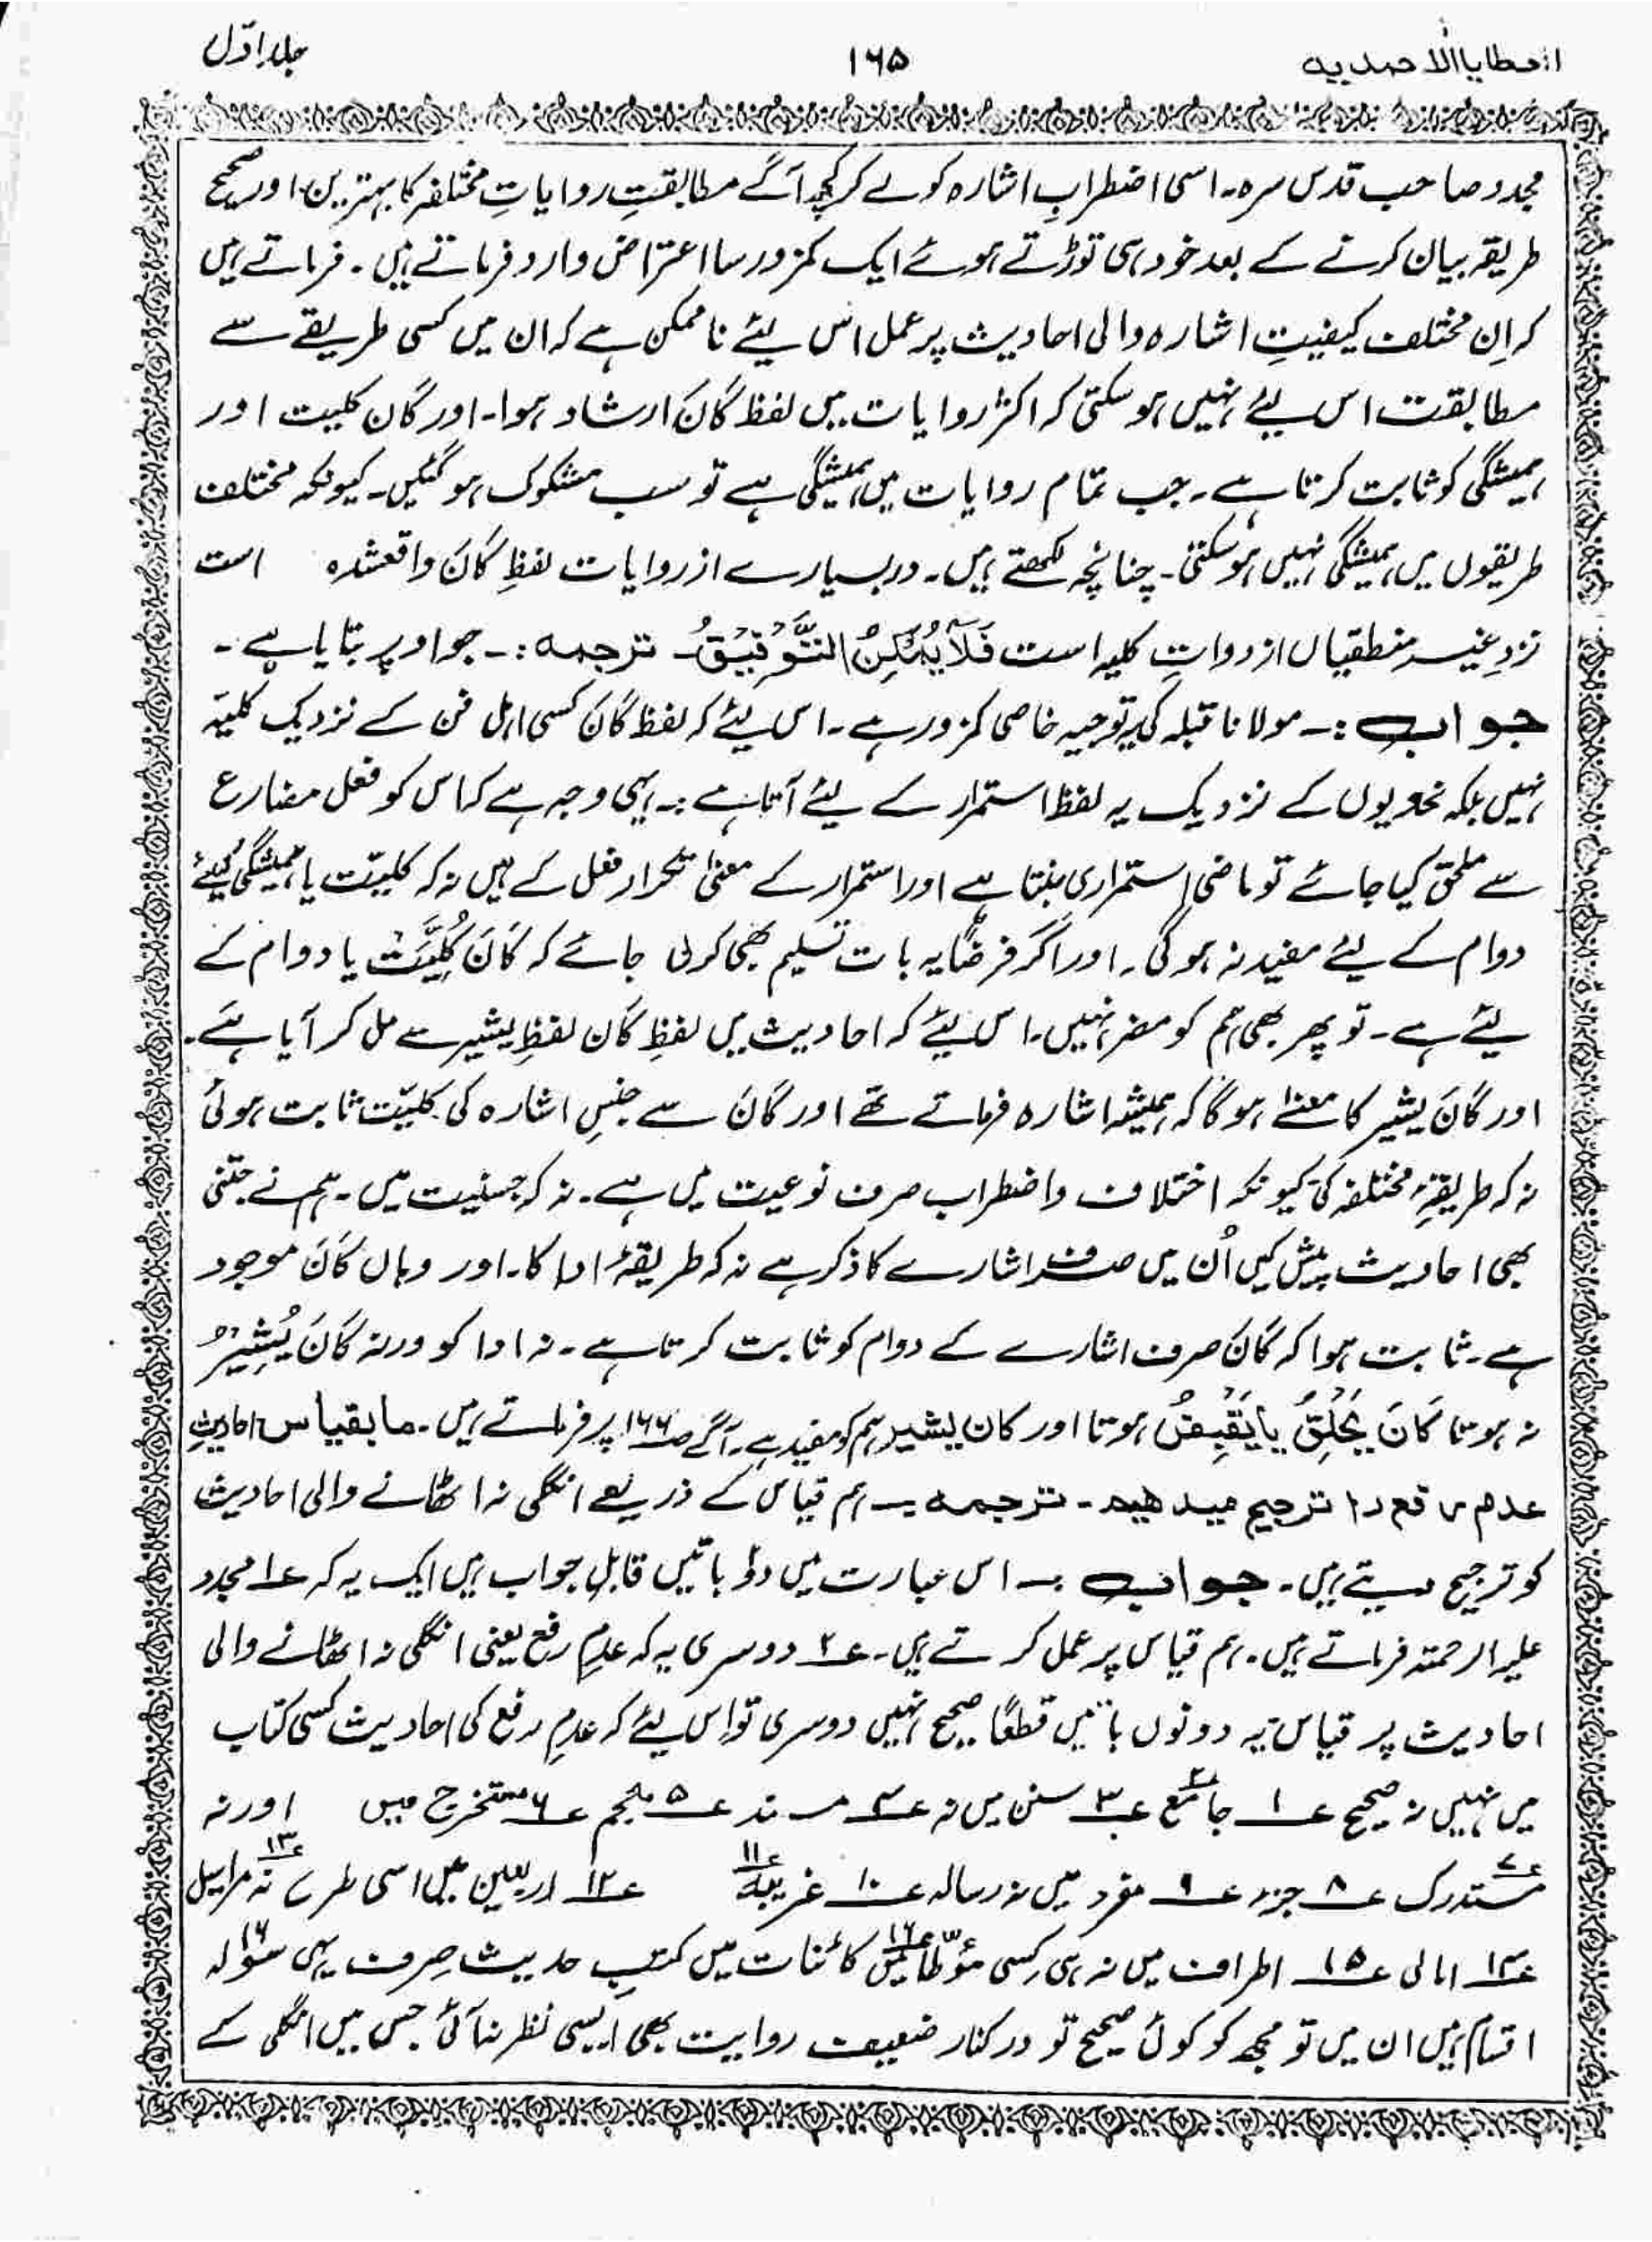 العطایا الاحمدیه ۱۶۵ جلد اوّل
مجدد صاحب قدس سرہ۔ اسی اضطرابِ اشارہ کو لے کر کچھ آگے مطابقتِ روایاتِ مختلفہ کا بہترین اور صحیح
طریقہ بیان کرنے کے بعد خود ہی توڑتے ہوئے ایک کمزور سا اعتراض وارد فرماتے ہیں۔ فرماتے ہیں
کہ اِن مختلف کیفیتِ اشارہ والی احادیث پر عمل اس لیئے ناممکن ہے کہ ان میں کسی طریقے سے
مطابقت اس لیئے نہیں ہو سکتی کہ اکثر روایات میں لفظ کَانَ ارشاد ہوا۔ اور کَان کلیت اور
ہمیشگی کو ثابت کرتا ہے۔ جب تمام روایات میں ہمیشگی ہے تو سب مشکوک ہو گئیں۔ کیونکہ مختلف
طریقوں میں ہمیشگی نہیں ہو سکتی۔ چنانچہ لکھتے ہیں۔ در بسیارے از روایات لفظِ کَانَ واقعشدہ است
نزدِ غیر منطقیاں از دواتِ کلیہ است فَلَا یُمْکِنُ التَّوْفِیْقُ۔ ترجمہ :۔ جو اوپر بتایا ہے۔
جواب :۔ مولانا قبلہ کی یہ توجیہ خاصی کمزور ہے۔ اس لیئے کہ لفظ کَانَ کسی اہل فن کے نزدیک کلیۃ
نہیں بلکہ نحویوں کے نزدیک یہ لفظ استمرار کے لیئے آتا ہے۔ یہی وجہ ہے کہ اس کو فعل مضارع
سے ملحق کیا جائے تو ماضی استمراری بنتا ہے اور استمرار کے معنیٰ تکرارِ فعل کے ہیں نہ کہ کلیّت یا ہمیشگی کیلئے
دوام کے لیئے مفید نہ ہوگی۔ اور اگر فرضًا یہ بات تسلیم بھی کر لی جائے کہ کَانَ کُلِیَّتْ یا دوام کے
لیئے ہے۔ تو پھر بھی ہم کو مضر نہیں۔ اس لیئے کہ احادیث میں لفظِ کَان لفظِ یشیر سے مل کر آیا ہے۔
اور کَانَ یشیر کا معنےٰ ہوگا کہ ہمیشہ اشارہ فرماتے تھے اور کَانَ سے جنسِ اشارہ کی کلیّت ثابت ہوئی
نہ کہ طریقۂِ مختلفہ کی کیونکہ اختلاف و اضطراب صرف نوعیت میں ہے۔ نہ کہ جنسیت میں۔ ہم نے جتنی
بھی احادیث پیش کیں اُن میں صرف اشارے کا ذکر ہے نہ کہ طریقۂ ادا کا۔ اور وہاں کَانَ موجود
ہے۔ ثابت ہوا کہ کَانَ صرف اشارے کے دوام کو ثابت کرتا ہے۔ نہ ادا کو ورنہ کَانَ یُشِیْرُ
نہ ہوتا کَانَ یُحَلِّقُ یا یَقْبِضُ ہوتا اور کان یشیر ہم کو مفید ہے۔ آگے ص ۱۶۶ پر فرماتے ہیں۔ ما بقیاس احادیثِ
عدم رفع را ترجیح میدهیم۔ ترجمہ :۔ ہم قیاس کے ذریعے انگلی نہ اٹھانے والی احادیث
کو ترجیح دیتے ہیں۔ جواب :۔ اس عبارت میں دو باتیں قابلِ جواب ہیں ایک یہ کہ ع۱ مجدد
علیہ الرحمۃ فرماتے ہیں۔ ہم قیاس پر عمل کرتے ہیں۔ ع۲ دوسری یہ کہ عدمِ رفع یعنی انگلی نہ اٹھانے والی
احادیث پر قیاس یہ دونوں باتیں قطعًا صحیح نہیں دوسری تو اس لیئے کہ عدمِ رفع کی احادیث کسی کتاب
میں نہیں نہ صحیح ع۱ جامع ع۲ ع۳ سنن میں نہ ع۴ مسند ع۵ معجم ع۶ مستخرج میں اور نہ
ع۷ مستدرک ع۸ جزء ع۹ مفرد میں نہ رسالہ ع۱۰ غریبہ ع۱۱ ع۱۲ اربعین میں اسی طرح نہ مراسیل ع۱۳
ع۱۴ امالی ع۱۵ اطراف میں نہ ہی کِسی مؤطّا ع۱۶ میں کائنات میں کتبِ حدیث صِرف یہی سولہ ۱۶
اقسام ہیں ان میں تو مجھ کو کوئی صحیح تو درکنار ضعیف روایت بھی ایسی نظر نہ آئی جس میں انگلی کے